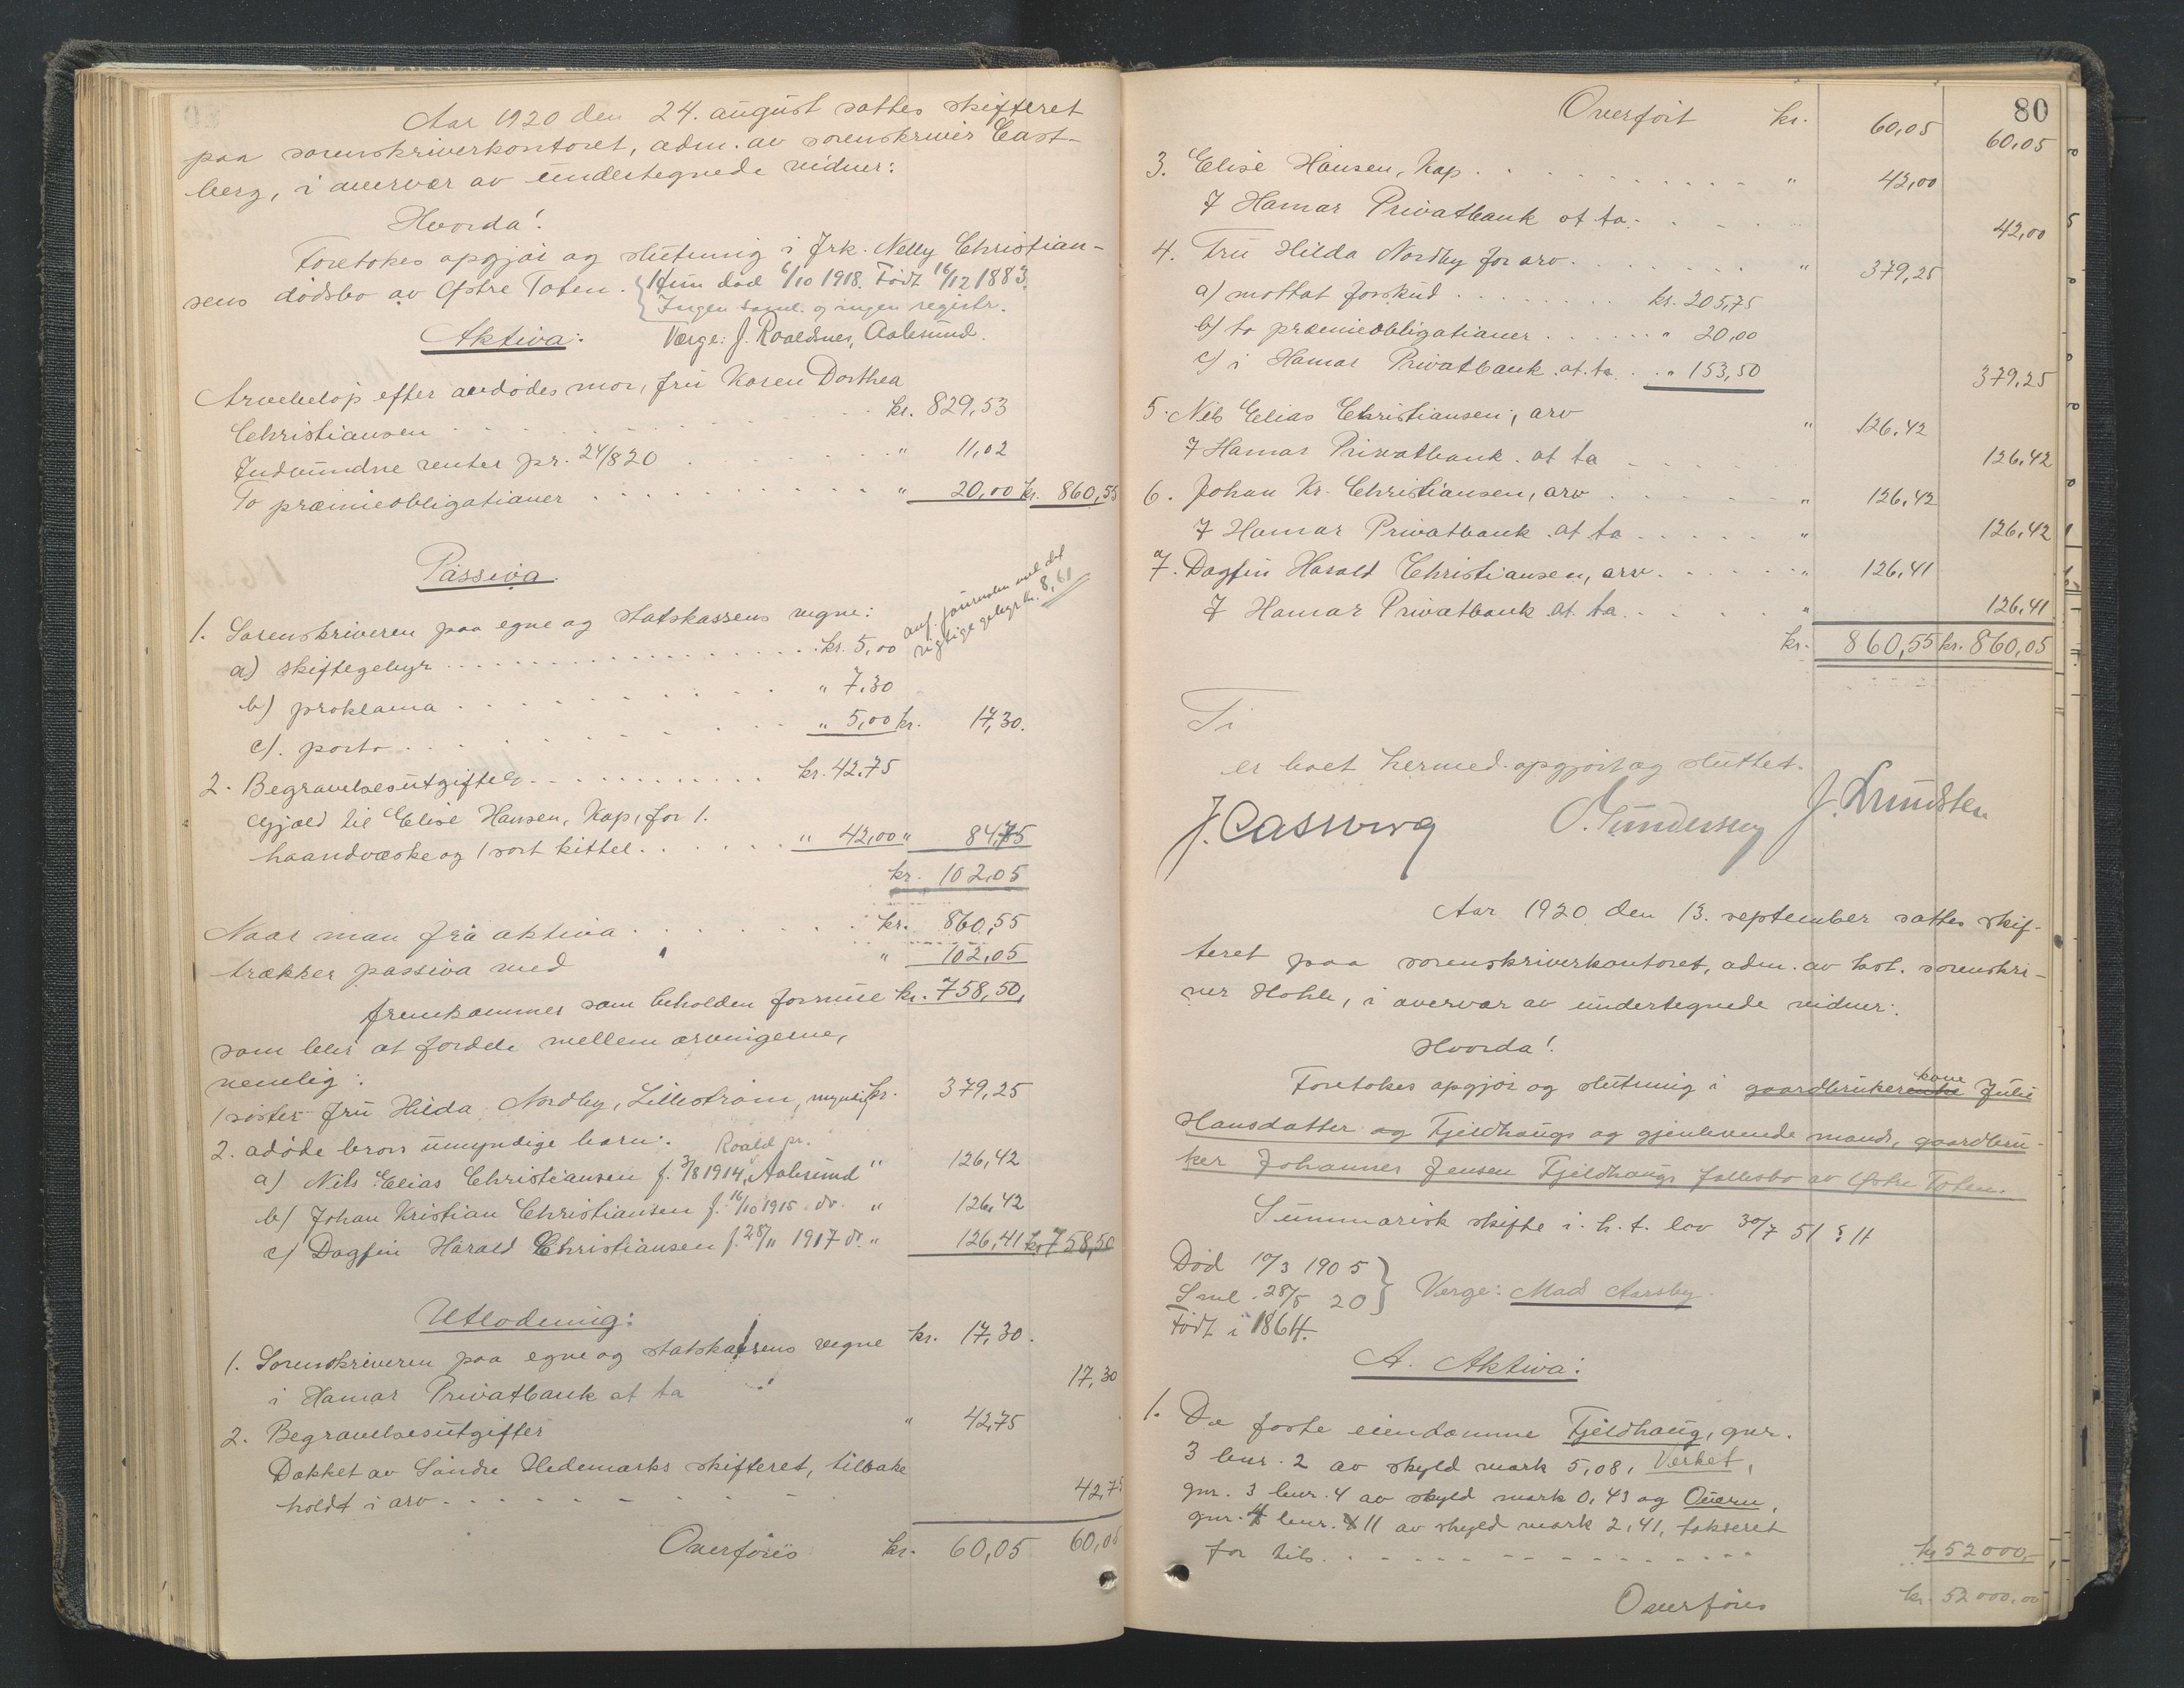 Aar 1920 den 24. august sattes skifteret
paa sorenskriverkontoret, adm. av sorenskriver Cast-
berg, i overvær av undertegnede vidner:
Hvorda!
Foretokes opgjør og slutning i Frk. Nelly Christian-
sens dødsbo av Østre Toten. Hun død 6/10 1918. Født 16/12 1883.
Ingen saml. og ingen registr.
Aktiva: Værge: J. Roaldsnes, Aalesund.
Arvebeløp efter avdødes mor, fru Karen Dorthea
Christiansen kr. 829,53
Indvundne renter pr. 24/8 20 " 11,02
To præmieobligationer " 20,00 kr. 860,55
Passiva.
anf. journalen med det
rigtige gebyr kr. 8,61
1. Sorenskriveren paa egne og statskassens vegne:
a) skiftegebyr kr. 5,00
b) proklama " 7.30
c). porto " 5,00 kr. 17,30.
2. Begravelsesutgifter kr. 42.75
Gjæld til Elise Hansen, Kap, for 1.
haandvæske og 1 sort kittel " 42,00 " 84,75
kr. 102,05
Naar man fra aktiva kr. 860,55
trækker passiva med " 102,05
fremkommer som beholden formue kr. 758,50,
som blir at fordele mellem arvingerne,
nemlig:
1 søster fru Hilda Nordby, Lillestrøm, myndig kr. 379,25
2. adøde brors umyndige barn: Roald pr.
a) Nils Elias Christiansen f. 3/8 1914, Aalesund " 126,42
b) Johan Kristian Christiansen f. 16/10 1915 do. " 126,42
c) Dagfin Harald Christiansen f. 28/11 1917 do. " 126,41 kr. 758,50
Utlodning:
1. Sorenskriveren paa egne og statskassens vegne kr. 17,30.
i Hamar Privatbank at ta 17,30
2. Begravelsesutgifter " 42,75
Dækket av Søndre Hedemarks skifteret, tilbake
holdt i arv 42,75
Overføres kr. 60,05 60,05
80
Overført kr. 60,05 60,05
3. Elise Hansen, Kap " 42,00
I Hamar Privatbank at ta 42,00
4. Fru Hilda Nordby for arv " 379,25
a) mottat forskud kr. 205,75
b) to præmieobligationer " 20,00
c) i Hamar Privatbank at ta " 153,50 379,25
5. Nils Elias Christiansen, arv " 126,42
I Hamar Privatbank at ta 126,42
6. Johan Kr. Christiansen, arv " 126,42
I Hamar Privatbank at ta " 126,42
7. Dagfin Harald Christiansen, arv " 126,41
I Hamar Privatbank at ta " 126,41
kr. 860,55 kr. 860,05
Ti
er boet hermed opgjort og sluttet.
J. Castberg O. Gundersen J. Lundsten
Aar 1920 den 13. september sattes skif-
teret paa sorenskriverkontoret, adm. av kst. sorenskri-
ver Hohle, i overvær av undertegnede vidner:
Hvorda!
Foretokes opgjør og slutning i gaardbrukerenke kone Julie
Hansdatter og Fjeldhaugs og gjenlevende mands, gaardbru-
ker Johannes Jensen Fjeldhaugs fællesbo av Østre Toten.
Summarisk skifte i. h. t. lov 30/7 51 § 11
Død 10/3 1905
Sml. 28/5 20 Verge: Mads Aarsby.
Født i 1864.
A. Aktiva:
1. De faste eiendomme Fjeldhaug, gnr.
3 bnr. 2 av skyld mark 5,08, Verket,
gnr. 3 bnr. 4 av skyld mark 0,43 og Overn,
gnr. 4 bnr. 11 av skyld mark 2,41, takseret
for tils. kr 52000,-
Overføres kr. 52 000,00